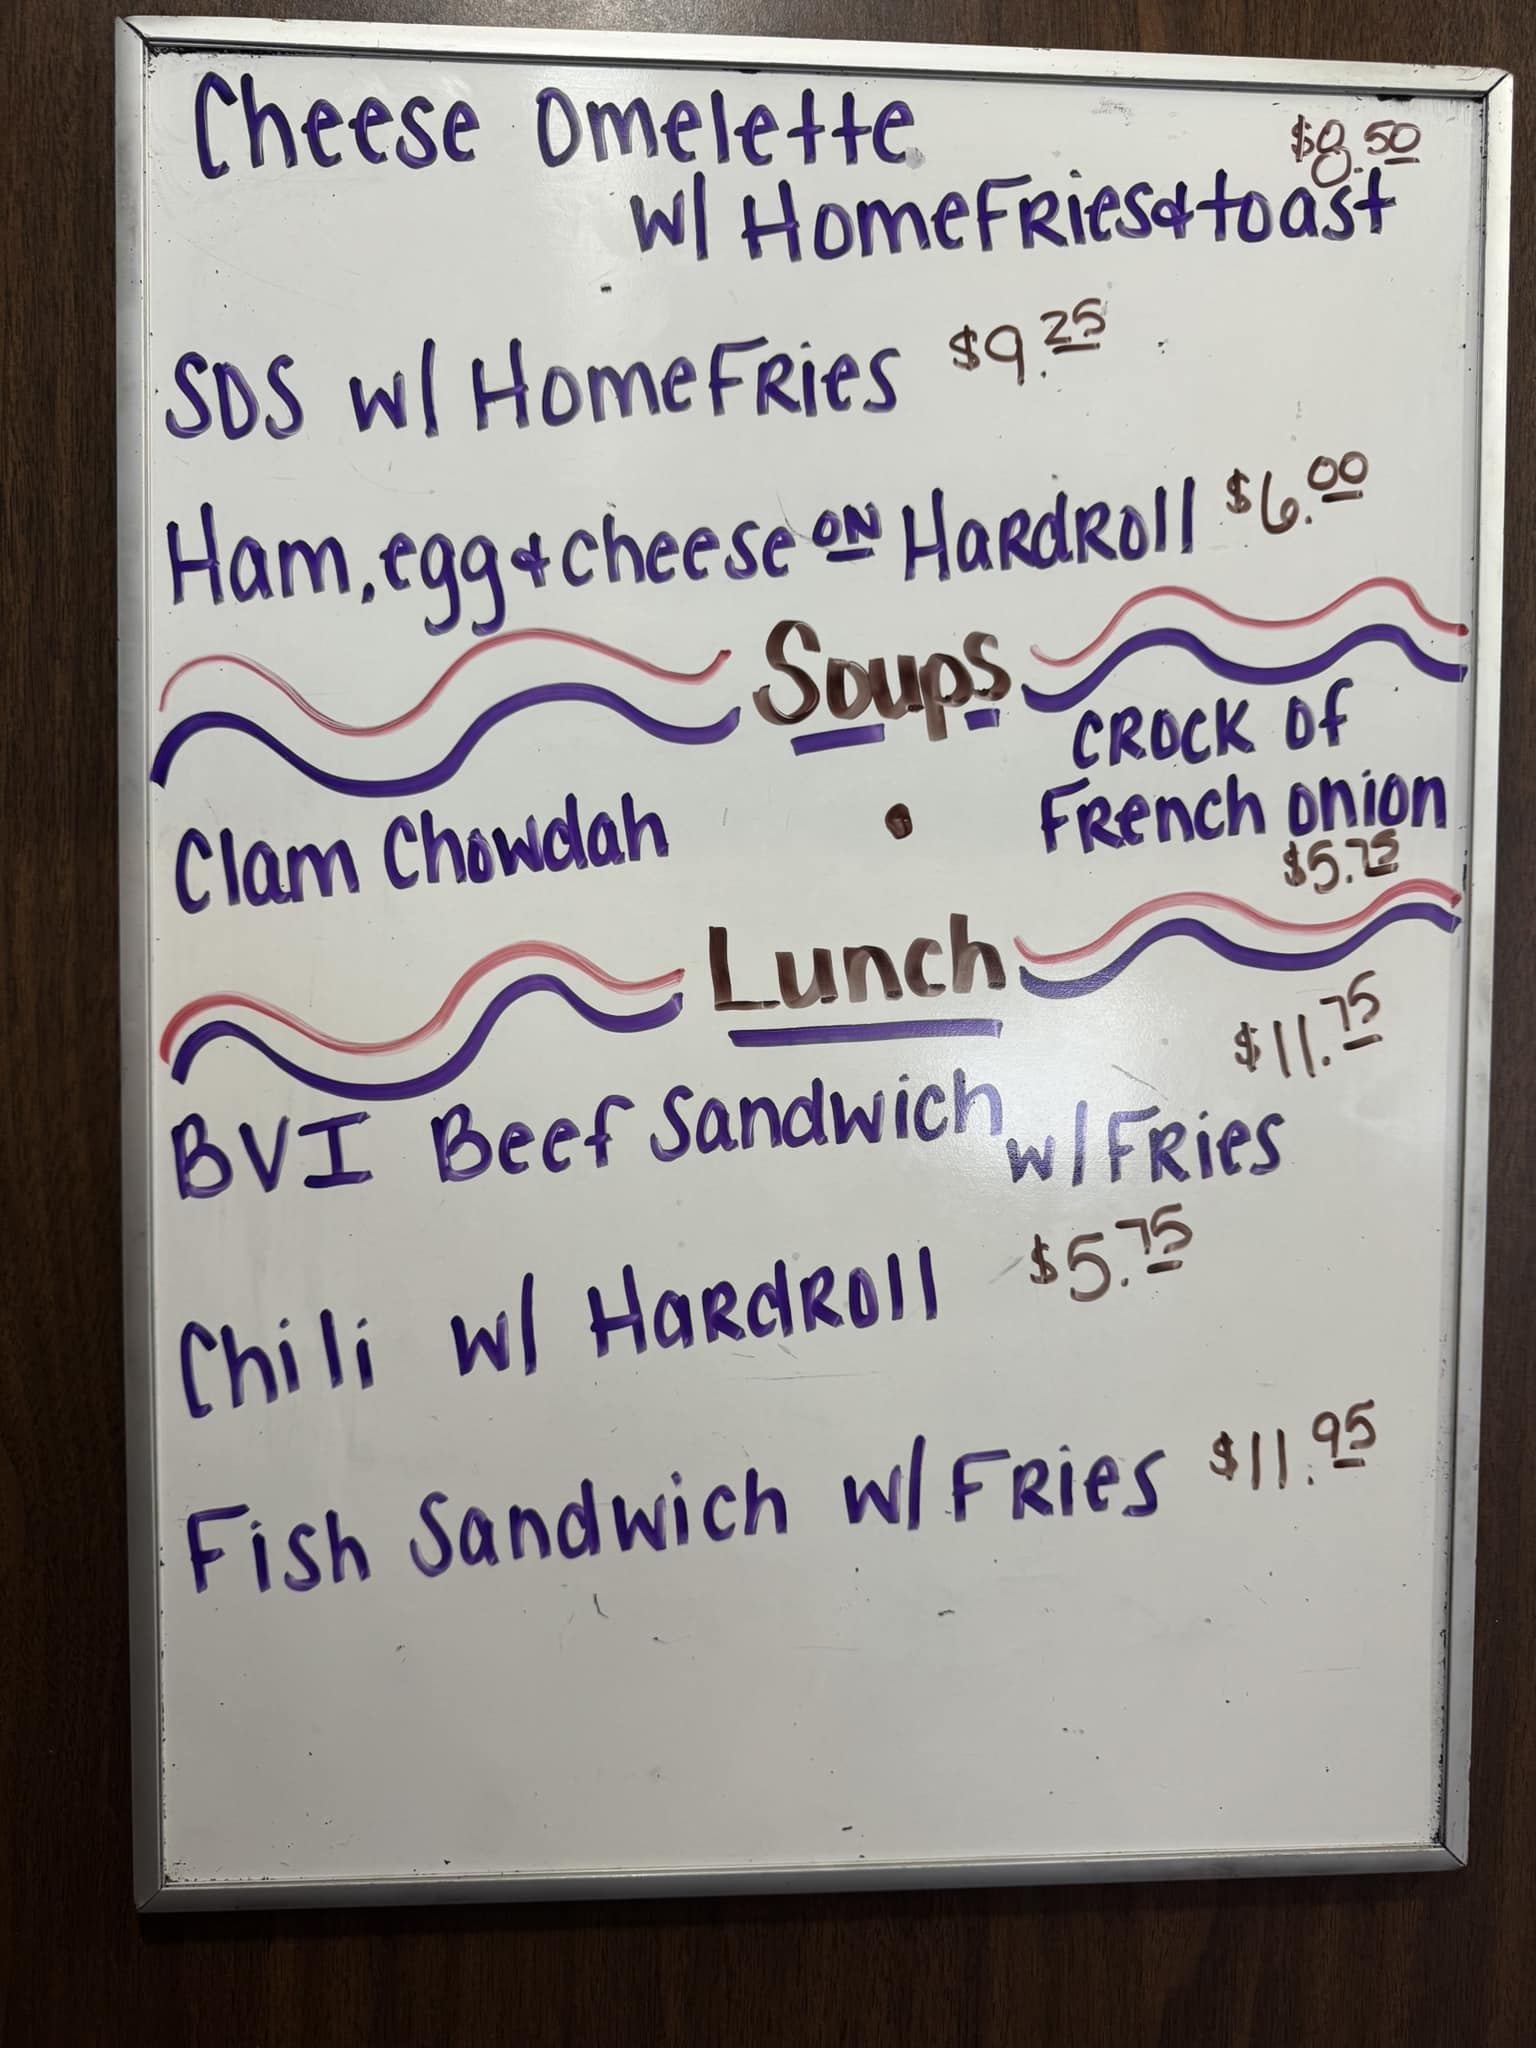 Cheese Omelette $8.50
w/ HomeFries & toast
SOS w/ HomeFries $9.25
Ham, egg & cheese ON HardRoll $6.00
Soups
Clam Chowdah • CROCK Of
French onion
$5.75
Lunch
$11.75
BVI Beef Sandwich w/ Fries
Chili w/ HardRoll $5.75
Fish Sandwich w/ Fries $11.95